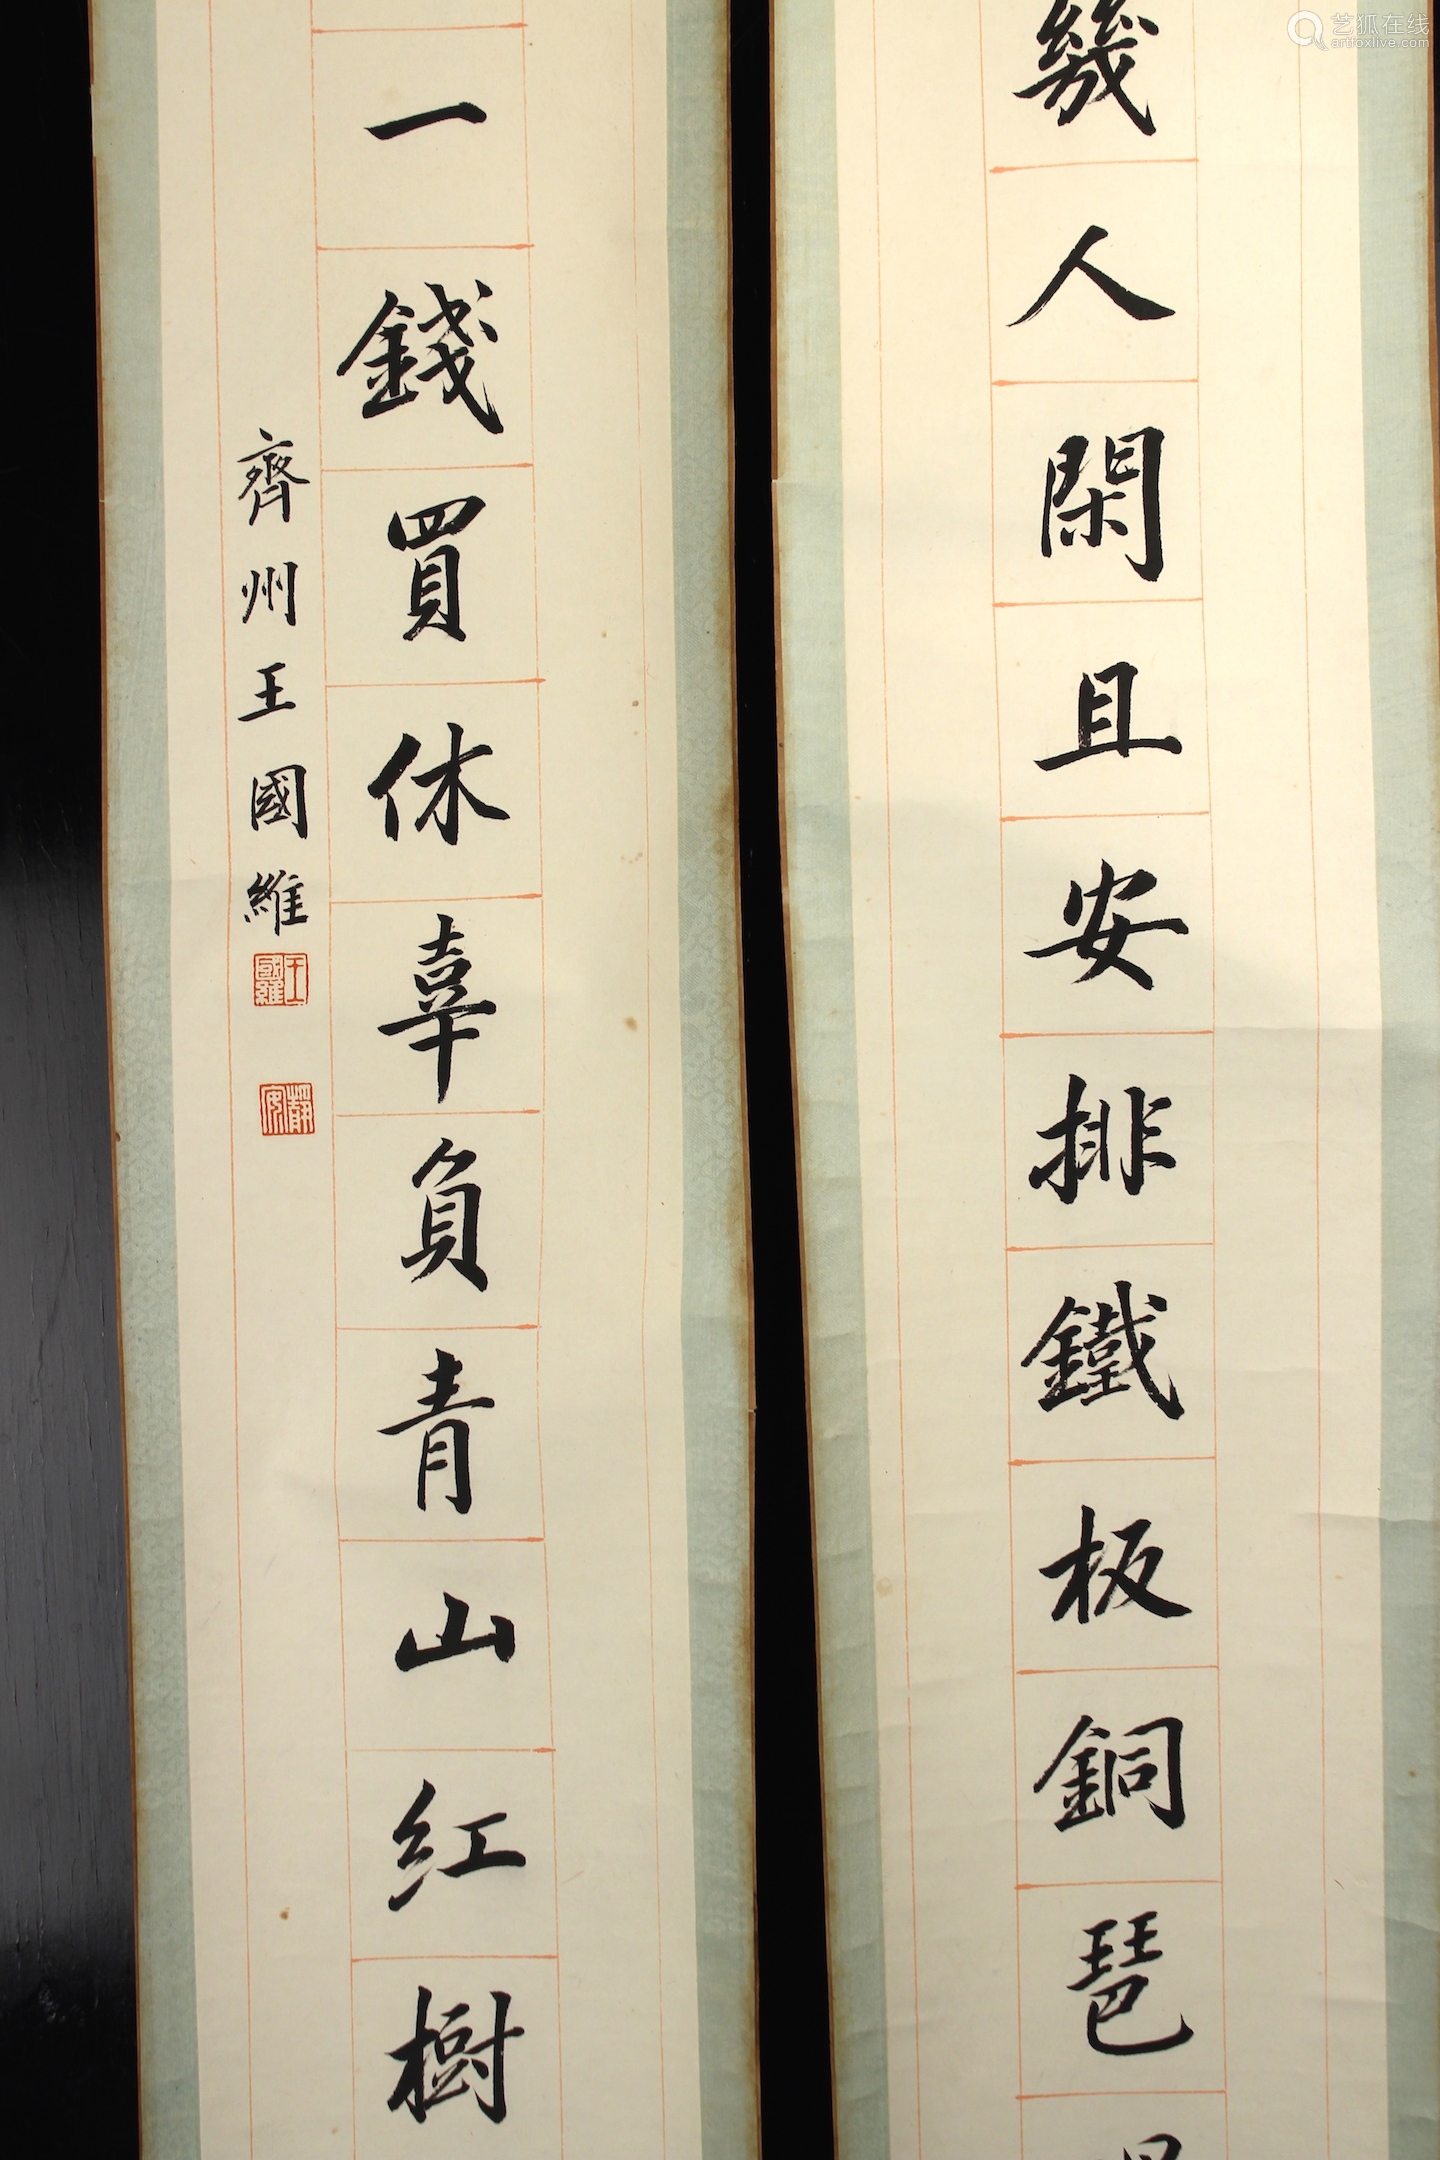 幾人閑且安排鐵板銅琶
一錢買休辜負青山紅樹
齊州王國維
王國維
靜安
艺狐在线
artfoxlive.com